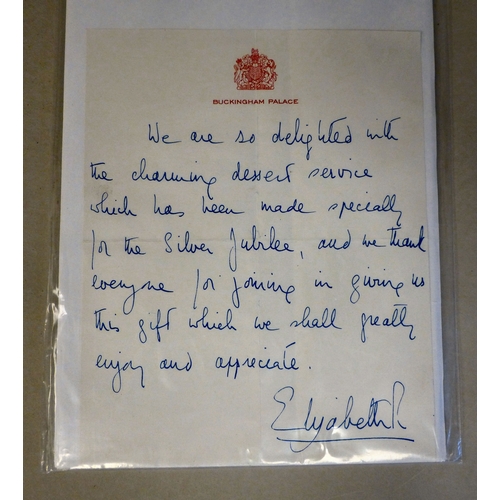 BUCKINGHAM PALACE
We are so delighted with
the charming dessert service
which has been made specially
for the Silver Jubilee, and we thank
everyone for joining in giving us
this gift which we shall greatly
enjoy and appreciate.
Elizabeth R